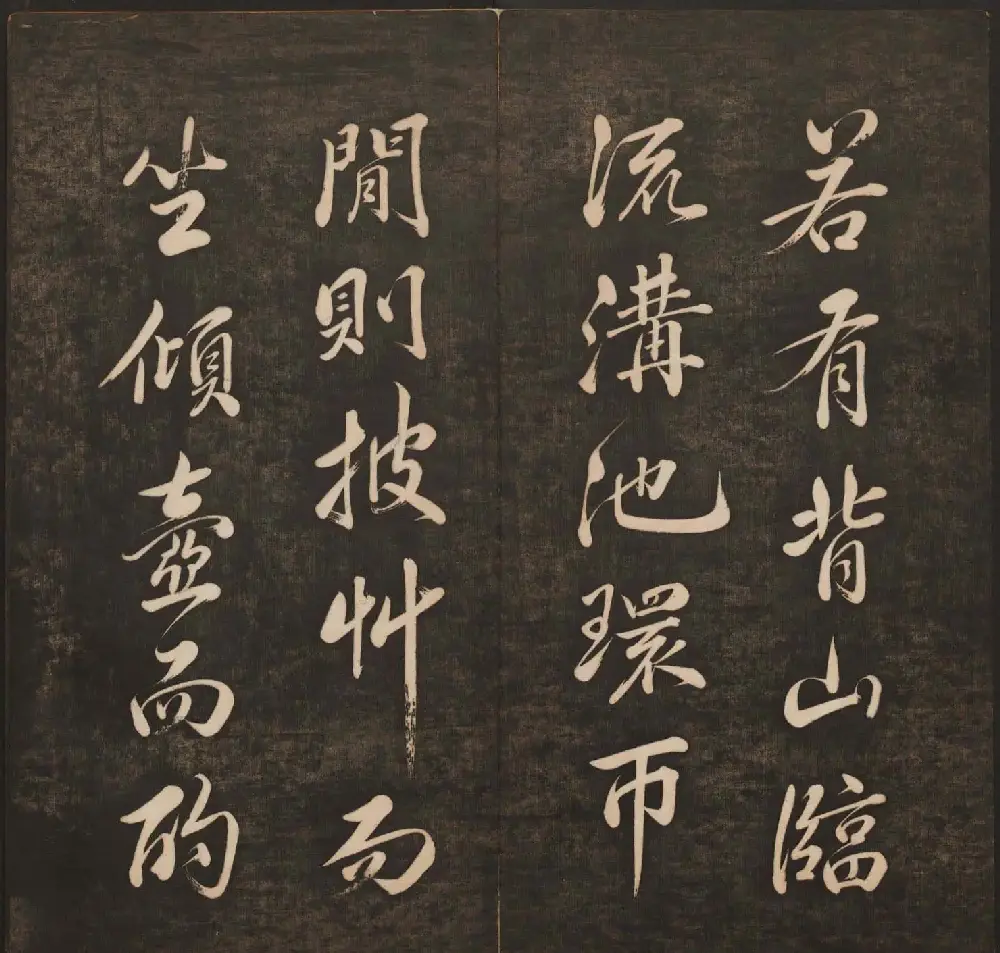 若有背山臨
流溝池環帀
閒則披艸而
坐傾壺而酌